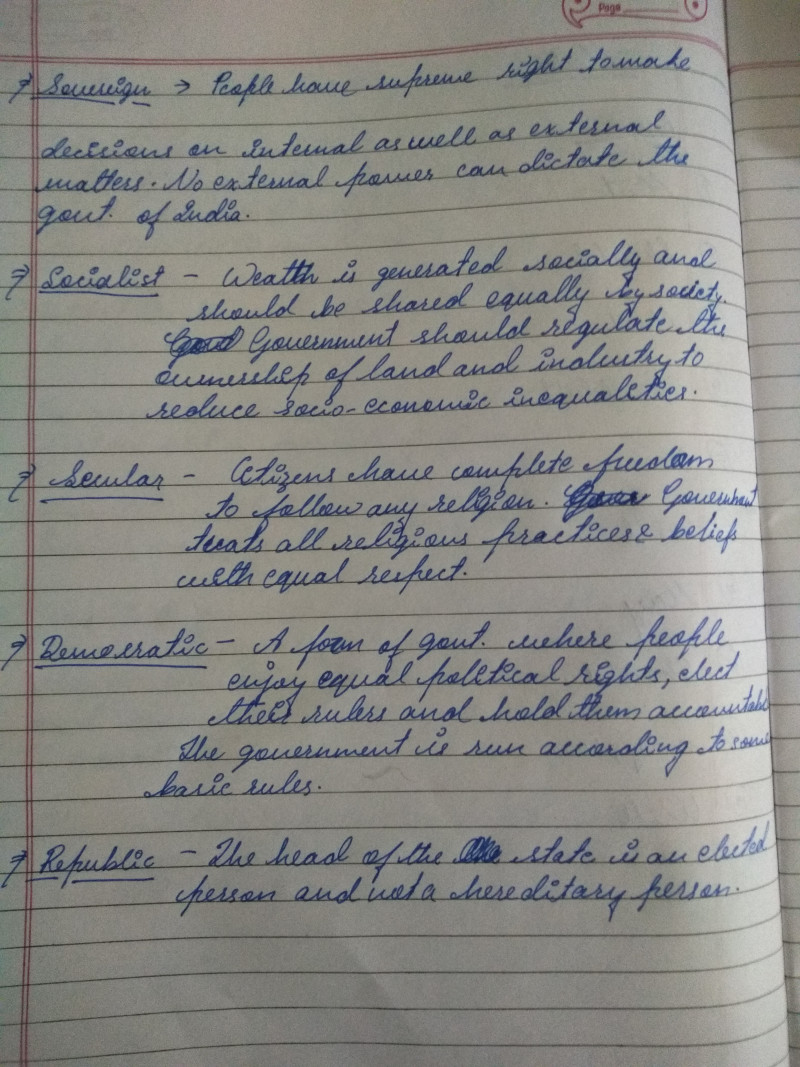 Page
⇒ Sovereign → People have supreme right to make
decisions on internal as well as external
matters. No external power can dictate the
govt. of India.
⇒ Socialist - Wealth is generated socially and
should be shared equally by society.
Government should regulate the
ownership of land and industry to
reduce socio-economic inequalities.
⇒ Secular - Citizens have complete freedom
to follow any religion. Government
treats all religious practices & beliefs
with equal respect.
⇒ Democratic - A form of govt. where people
enjoy equal political rights, elect
their rulers and hold them accountable
The government is run according to some
basic rules.
⇒ Republic - The head of the state is an elected
person and not a hereditary person.